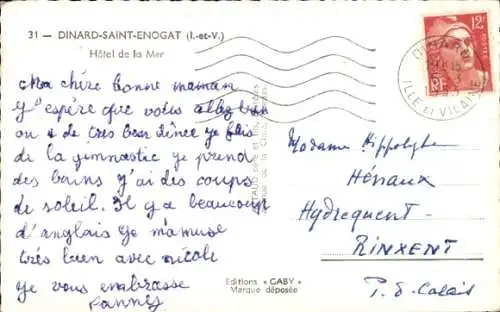 31 — DINARD-SAINT-ENOGAT (I.-et-V.)
Hôtel de la Mer
12F
RF
DINARD
ILLE et VILAINE
Ma chère bonne maman
Y'espère que vous allez bien
de très beau
de la gimnastic ye prend
des bains y'ai des coups
de soleil. Il y a beaucoup
d'anglais ye m'amuse
très bien avec nicole
ye vous embrasse
Fanney
Madame Hippolyhe
Hénaux
Hydrequent
RINXENT
P. d. Calais
Editions « GABY »
Marque déposée